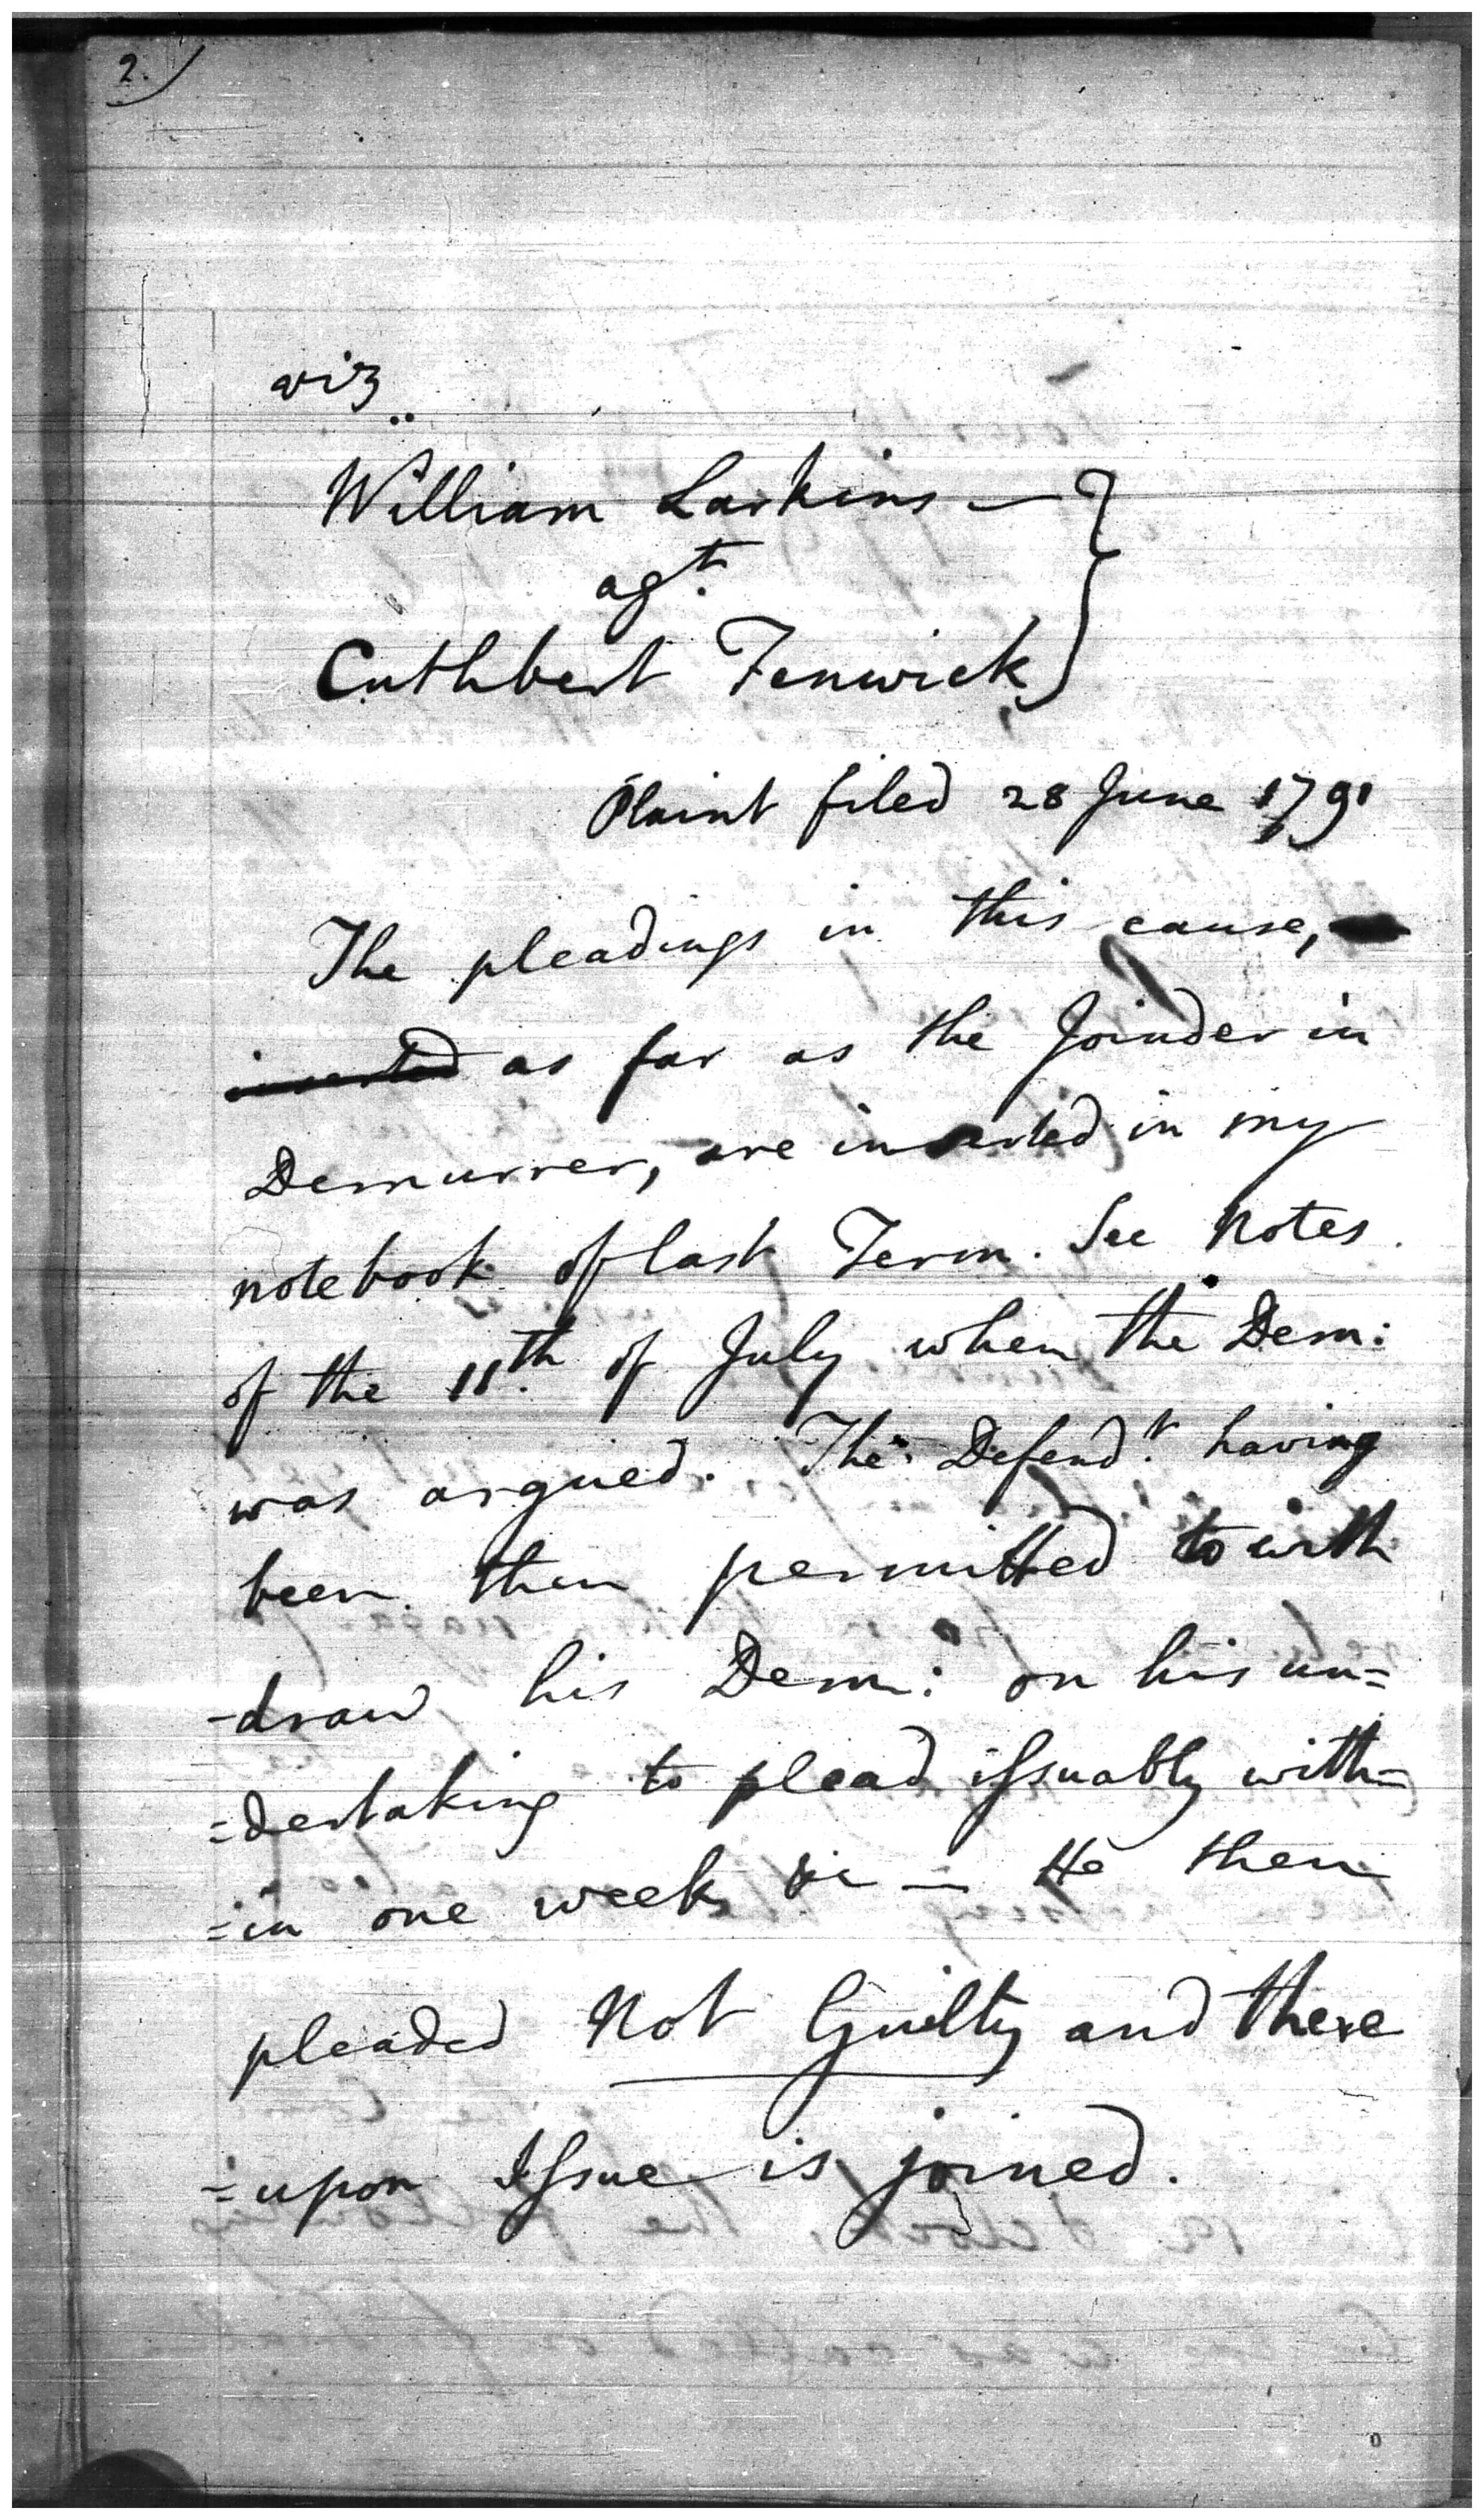 2.
viz
William Larkins —
agt.
Cuthbert Fenwick
Plaint filed 28 June 1791
The pleadings in this cause,
inserted as far as the Joinder in
Demurrer, are inserted in my
notebook of last Term. See Notes
of the 11th of July when the Dem:
was argued. The Defendt. having
been then permitted to with
-draw his Dem: on his un=
=dertaking to plead issuably with=
=in one week &c — He then
pleaded Not Guilty and there
=upon Issue is joined.